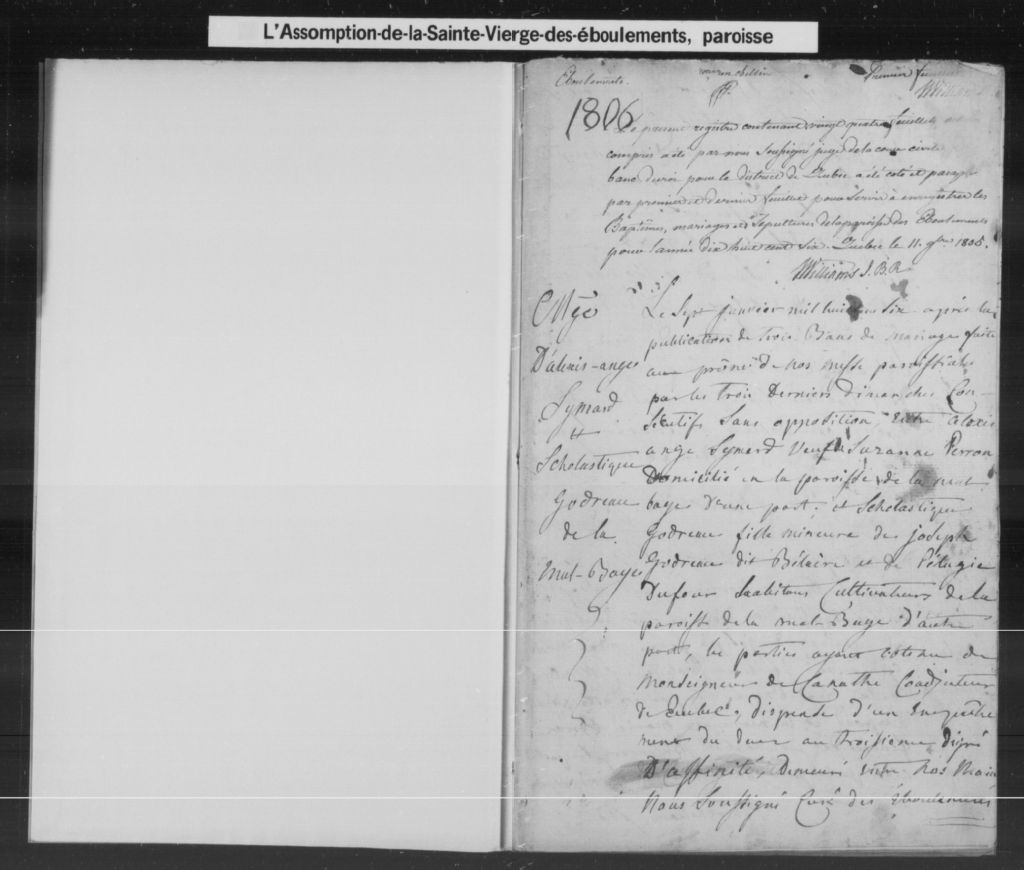 L'Assomption-de-la-Sainte-Vierge-des-éboulements, paroisse
Eboulements. Premier feuillet
Williams
1806
Le présent registre contenant vingt quatre feuillets
compris a été par nous Soussigné juge de la cour civile
banc du roi pour le district de Quebec a été coté et paraphé
par premier et dernier feuillet pour Servir a enregistrer les
Baptêmes, mariages et Sepultures de la paroisse des Eboulements
pour l'année dix huit cent Six. Quebec le 11. 9bre 1805.
Williams J. B. R
Mge
D'alexis-ange
Symard
et
Scholastique
Godreau
de la
Mal-Baye
Le Sept janvier mil huit cent Six après la
publication de trois Bans de mariage faite
aux prône de nos messe paroissiales
par les trois Derniers Dimanches Con-
Sécutifs Sans opposition, entre alexis
ange Symard Veuf de Suzanne Perron
Domicilié en la paroisse de la mal
baye d'une part. et Scholastique
Godreau fille mineure de joseph
Godreau dit Bélaire et de Pélagie
Dufour habitans Cultivateurs de la
paroisse de la mal-Baye d'autre
part, les parties ayant obtenu de
Monseigneur de Canathe Coadjuteur
de Quebec, dispense d'un Empêche
ment du deux au troisieme dégré
D'affinité, Demeuré entre nos Mains
Nous Soussigné Curé des éboulements